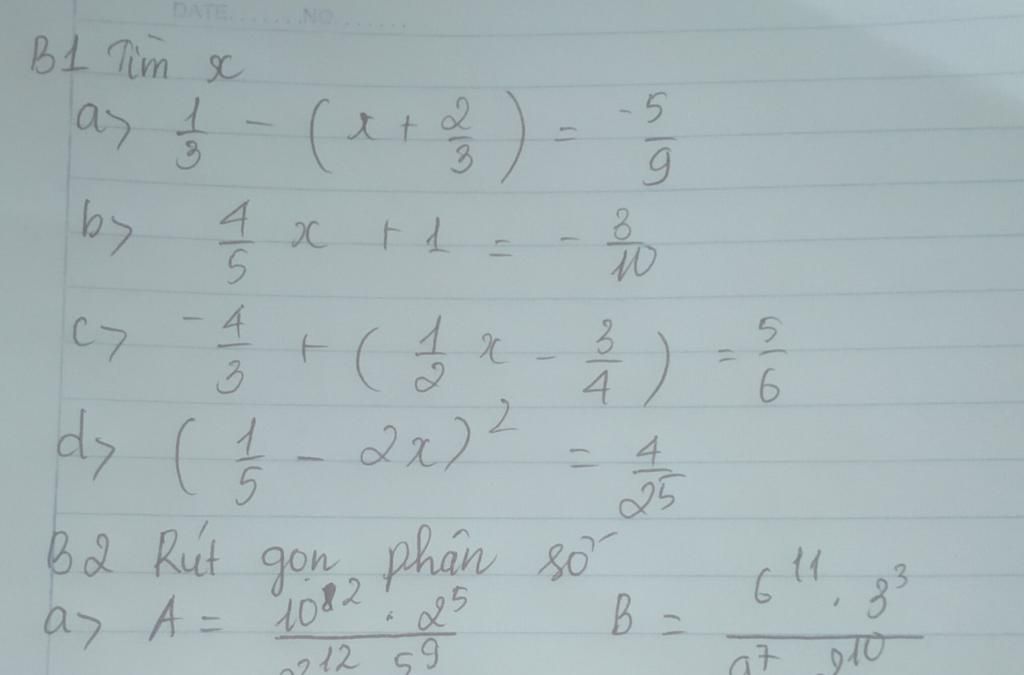 DATE.......NO.......
B1 Tìm x
a> 1/3 - (x + 2/3) = -5/9
b> 4/5 x + 1 = - 3/10
c> -4/3 + (1/2 x - 3/4) = 5/6
d> (1/5 - 2x)² = 4/25
B2 Rút gọn phân số
a> A = 2⁵ / 5⁹ B = 6¹¹ . 3³